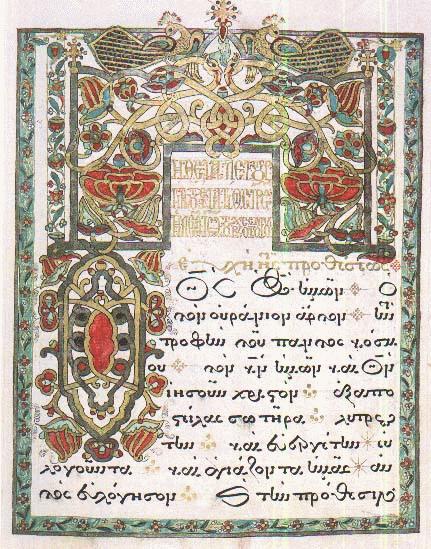 Ἡ ΘΕΙΑ
εὐχὴ τῆς προθέσεως
Ὁ Θς ὁ Θς ἡμῶν ὁ
τὸν οὐράνιον ἄρτον τὴν
τροφὴν τοῦ παντὸς κόσμ
ου τὸν κν ἡμῶν καὶ Θν
ἰησοῦν χριστὸν ἐξαπο
στείλας σωτῆρα λυτρω
τὴν καὶ εὐεργέτην εὐ
λογοῦντα καὶ ἁγιάζοντα ἡμᾶς αὐ
τὸς εὐλόγησον τὴν πρόθεσιν